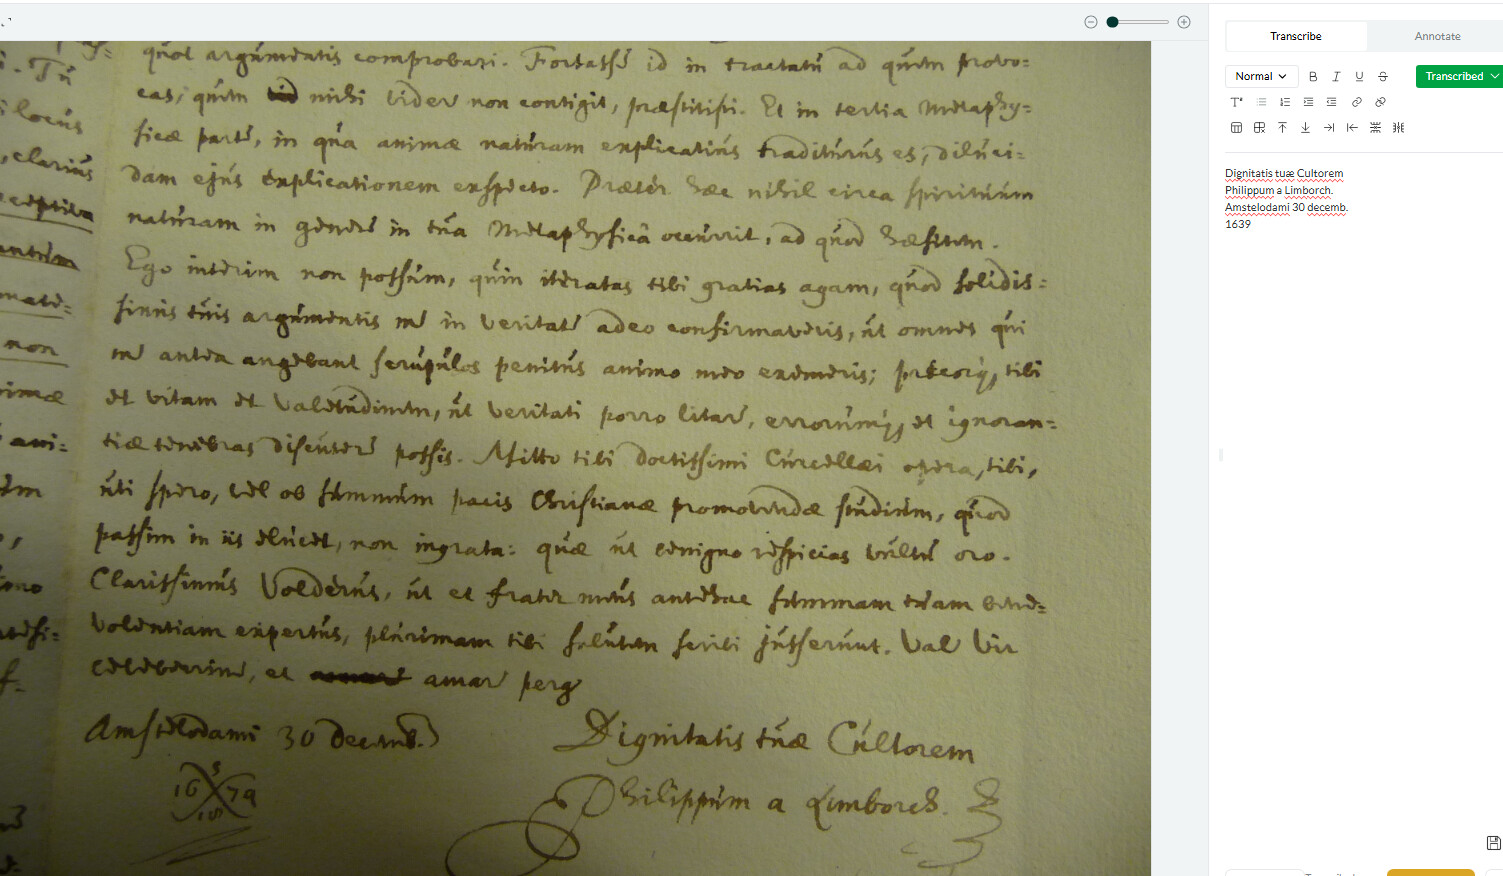 Transcribe
Annotate
Normal
B I U S
Transcribed
Dignitatis tuæ Cultorem
Philippum a Limborch.
Amstelodami 30 decemb.
1639
quot argumentis comprobari. Fortasse id in tractatu ad quem provo=
cas, quem mihi videre non contigit, præstitisti. Et in tertia Metaphy=
sicæ parte, in qua animæ naturam explicatius traditurus es, diluci=
dam ejus explicationem exspecto. Præter hæc nihil circa spirituum
naturam in genere in tua Metaphysicâ occurrit, ad quod hæsitem.
Ego interim non possum, quin iteratas tibi gratias agam, quod solidis=
simis tuis argumentis me in veritate adeo confirmaveris, ut omnes qui
me antea angebant scrupulos penitus animo meo exemeris; precorq, tibi
et vitam et valetudinem, ut veritati porro litare, errorumq, et ignoran=
tiæ tenebras discutere possis. Mitto tibi doctissimi Curcellæi opera, tibi,
uti spero, vel ob summum pacis Christianæ promovendæ studium, quod
passim in iis elucet, non ingrata: quæ ut benigno respicias vultu oro.
Clarissimus Volderus, ut et frater meus antehac summam tuam bene=
volentiam expertus, plurimam tibi salutem scribi jusserunt. Vale Vir
celeberrime, et amare perge
Amstelodami 30 Decemb.
Dignitatis tuæ Cultorem
16 79
Philippum a Limborch.